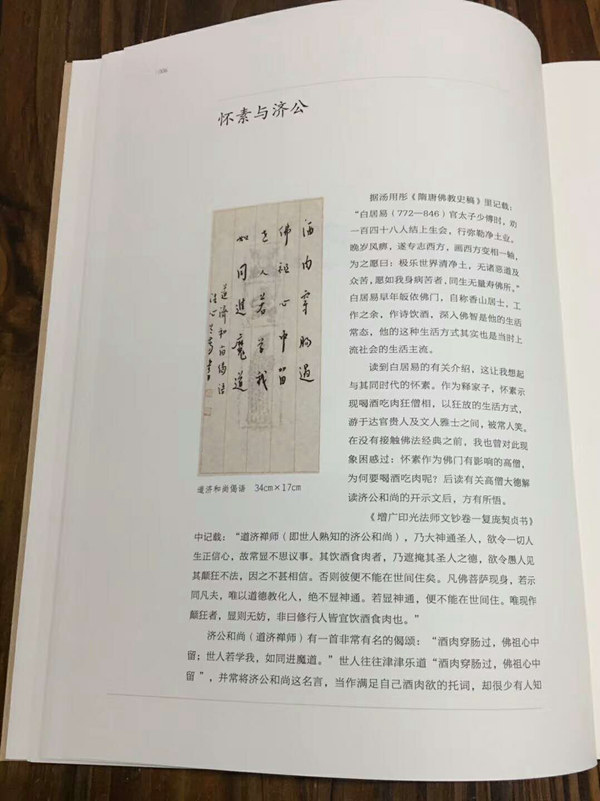 怀素与济公
酒肉穿肠過
佛祖心中留
世人若学我
如同進魔道
道濟和尚偈語
道济和尚偈语 34cm×17cm
据汤用彤《隋唐佛教史稿》里记载：
“白居易（772—846）官太子少傅时，劝
一百四十八人结上生会，行弥勒净土业。
晚岁风痹，遂专志西方，画西方变相一轴，
为之愿曰：极乐世界清净土，无诸恶道及
众苦，愿如我身病苦者，同生无量寿佛所。”
白居易早年皈依佛门，自称香山居士，工
作之余，作诗饮酒，深入佛智是他的生活
常态，他的这种生活方式其实也是当时上
流社会的生活主流。
读到白居易的有关介绍，这让我想起
与其同时代的怀素。作为释家子，怀素示
现喝酒吃肉狂僧相，以狂放的生活方式，
游于达官贵人及文人雅士之间，被常人笑。
在没有接触佛法经典之前，我也曾对此现
象困惑过：怀素作为佛门有影响的高僧，
为何要喝酒吃肉呢？后读有关高僧大德解
读济公和尚的开示文后，方有所悟。
《增广印光法师文钞卷一复庞契贞书》
中记载：“道济禅师（即世人熟知的济公和尚），乃大神通圣人，欲令一切人
生正信心，故常显不思议事。其饮酒食肉者，乃遮掩其圣人之德，欲令愚人见
其颠狂不法，因之不甚相信。否则彼便不能在世间住矣。凡佛菩萨现身，若示
同凡夫，唯以道德教化人，绝不显神通。若显神通，便不能在世间住。唯现作
颠狂者，显则无妨，非曰修行人皆宜饮酒食肉也。”
济公和尚（道济禅师）有一首非常有名的偈颂：“酒肉穿肠过，佛祖心中
留；世人若学我，如同进魔道。”世人往往津津乐道“酒肉穿肠过，佛祖心中
留”，并常将济公和尚这名言，当作满足自己酒肉欲的托词，却很少有人知